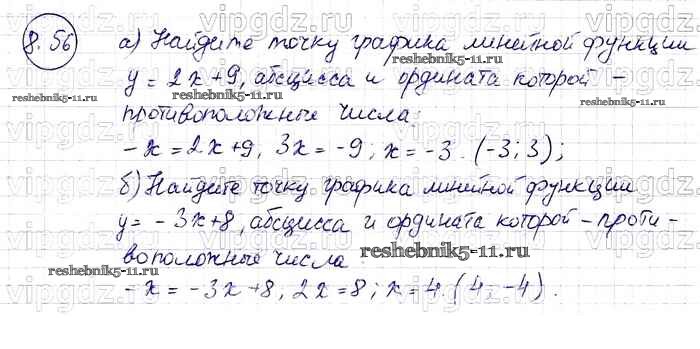 8.56
а) Найдите точку графика линейной функции
y = 2x+9, абсцисса и ордината которой –
reshebnik5-11.ru
reshebnik5-11.ru
противоположные числа:
-x = 2x+9, 3x = -9; x = -3. (-3; 3);
б) Найдите точку графика линейной функции
y = -3x+8, абсцисса и ордината которой – проти-
воположные числа
reshebnik5-11.ru
reshebnik5-11.ru
-x = -3x+8, 2x=8; x=4. (4; -4).
vipgdz.ru